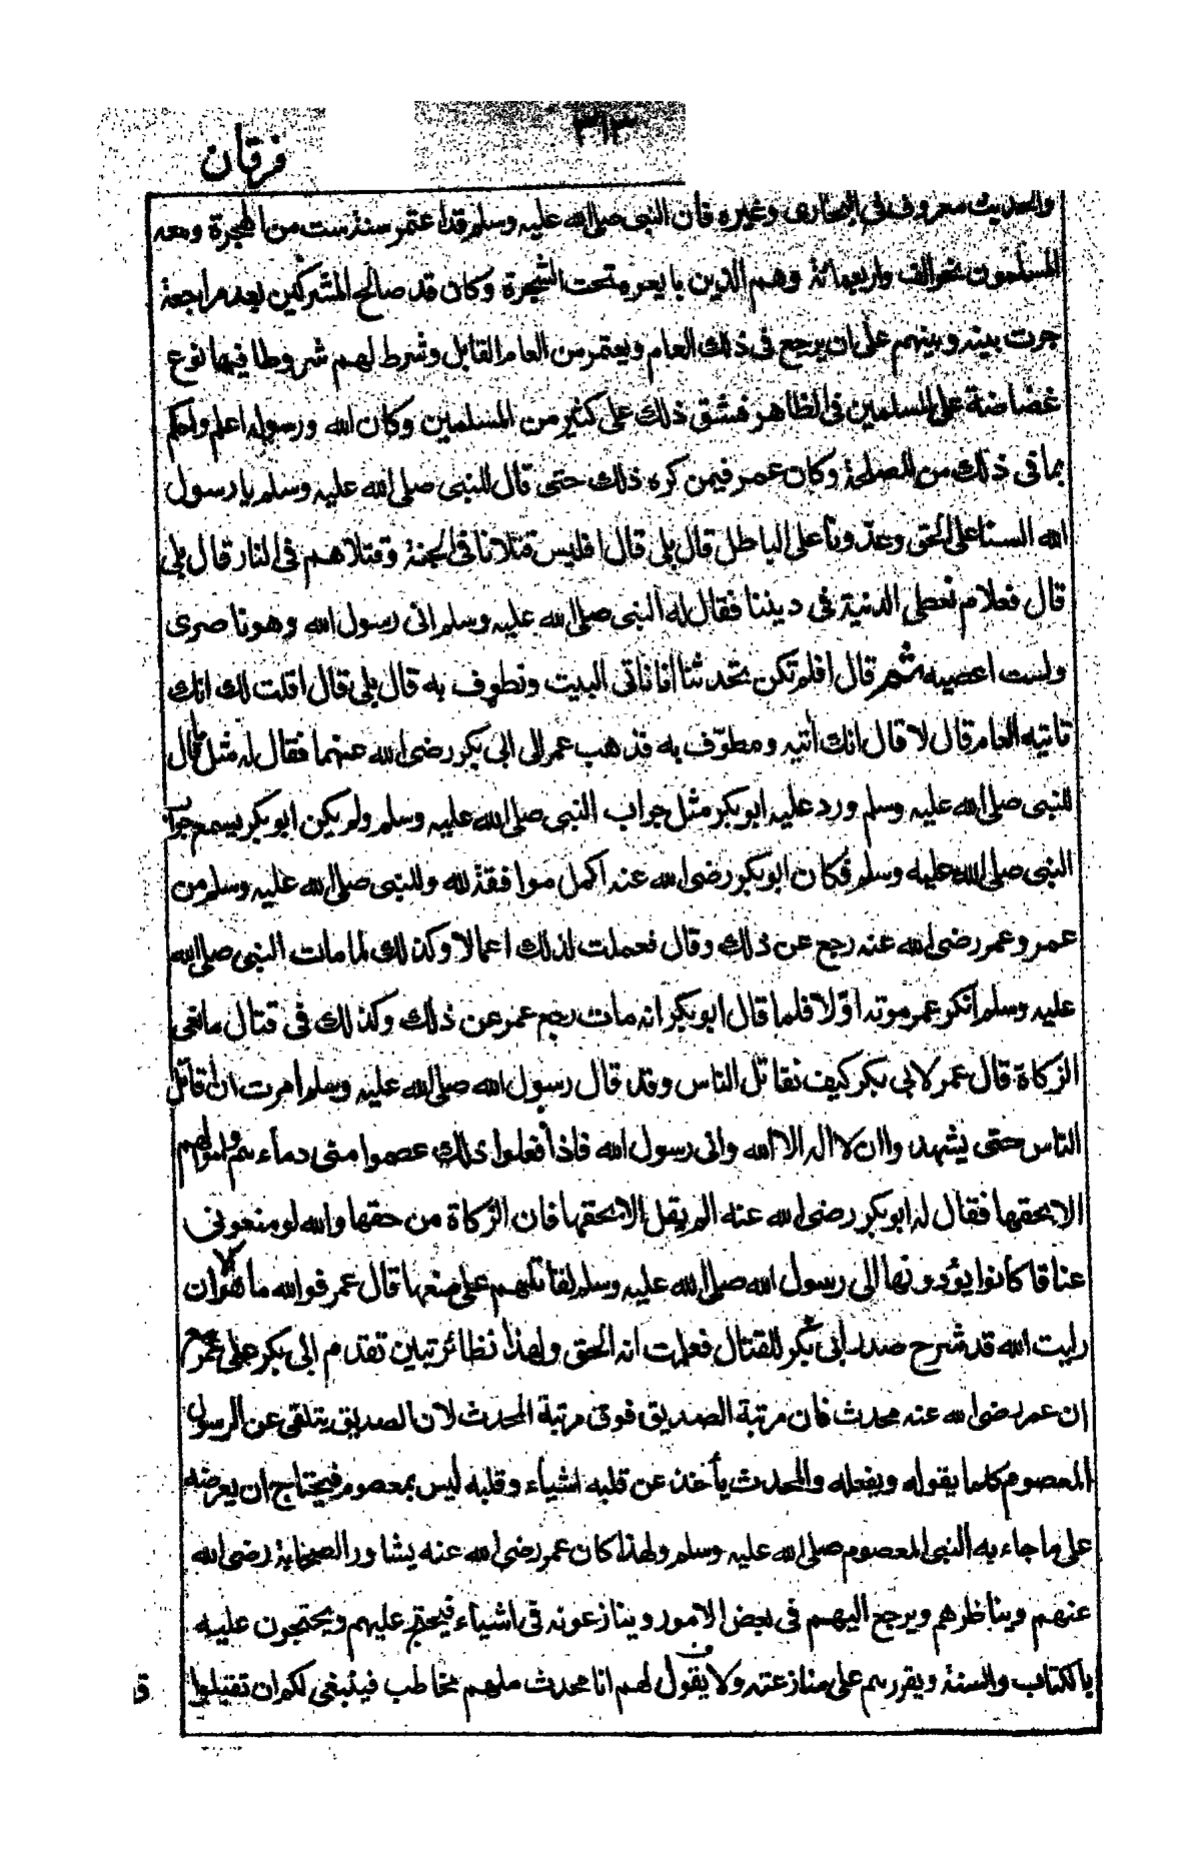 ٣١٣
فرقان
والحديث معروف في البخارى وغيره فان النبى صلى الله عليه وسلم قد اعتمر سنة ست من الهجرة ومعه
المسلمون نحو الف واربعمائة وهم الذين بايعوه تحت الشجرة وكان قد صالح المشركين بعد مراجعة
جرت بينه وبينهم على ان يرجع فى ذلك العام ويعتمر من العام القابل وشرط لهم شروطا فيها نوع
غضاضة على المسلمين فى الظاهر فشق ذلك على كثير من المسلمين وكان الله ورسوله اعلم واحكم
بما فى ذلك من المصلحة وكان عمر فيمن كره ذلك حتى قال للنبى صلى الله عليه وسلم يا رسول
الله السنا على الحق وعدونا على الباطل قال بلى قال افليس قتلانا فى الجنة وقتلاهم فى النار قال بلى
قال فعلام نعطى الدنية فى ديننا فقال له النبى صلى الله عليه وسلم انى رسول الله وهو ناصرى
ولست اعصيه ثم قال افلم تكن تحدثنا انا ناتى البيت ونطوف به قال بلى قال اقلت لك انك
تاتيه العام قال لا قال انك اتيه ومطوّف به فذهب عمر الى ابى بكر رضى الله عنهما فقال له مثل ما قال
للنبى صلى الله عليه وسلم ورد عليه ابو بكر مثل جواب النبى صلى الله عليه وسلم ولم يكن ابو بكر يسمع جواب
النبى صلى الله عليه وسلم فكان ابو بكر رضى الله عنه اكمل موافقة لله وللنبى صلى الله عليه وسلم من
عمر وعمر رضى الله عنه رجع عن ذلك وقال فعملت لذلك اعمالا وكذلك لما مات النبى صلى الله
عليه وسلم انكر عمر موته اوّلا فلما قال ابو بكر انه مات رجع عمر عن ذلك وكذلك فى قتال مانعى
الزكاة قال عمر لابى بكر كيف نقاتل الناس وقد قال رسول الله صلى الله عليه وسلم امرت ان اقاتل
الناس حتى يشهدوا ان لا اله الا الله وانى رسول الله فاذا فعلوا ذلك عصموا منى دماءهم واموالهم
الا بحقها فقال له ابو بكر رضى الله عنه الم يقل الا بحقها فان الزكاة من حقها والله لو منعونى
عناقا كانوا يؤدونها الى رسول الله صلى الله عليه وسلم لقاتلتهم على منعها قال عمر فوالله ما هو الا ان
رايت الله قد شرح صدر ابى بكر للقتال فعلمت انه الحق ولهذا نظائر تبين تقدم ابى بكر على عمر مع
ان عمر رضى الله عنه محدث فان مرتبة الصديق فوق مرتبة المحدث لان الصديق يتلقى عن الرسول
المعصوم كلما يقوله ويفعله والمحدث يأخذ عن قلبه اشياء وقلبه ليس بمعصوم فيحتاج ان يعرضه
على ما جاء به النبى المعصوم صلى الله عليه وسلم ولهذا كان عمر رضى الله عنه يشاور الصحابة رضى الله
عنهم ويناظرهم ويرجع اليهم فى بعض الامور وينازعونه فى اشياء فيحتج عليهم ويحتجون عليه
بالكتاب والسنة ويقررهم على منازعته ولا يقول لهم انا محدث ملهم مخاطب فينبغى لكم ان تقبلوا